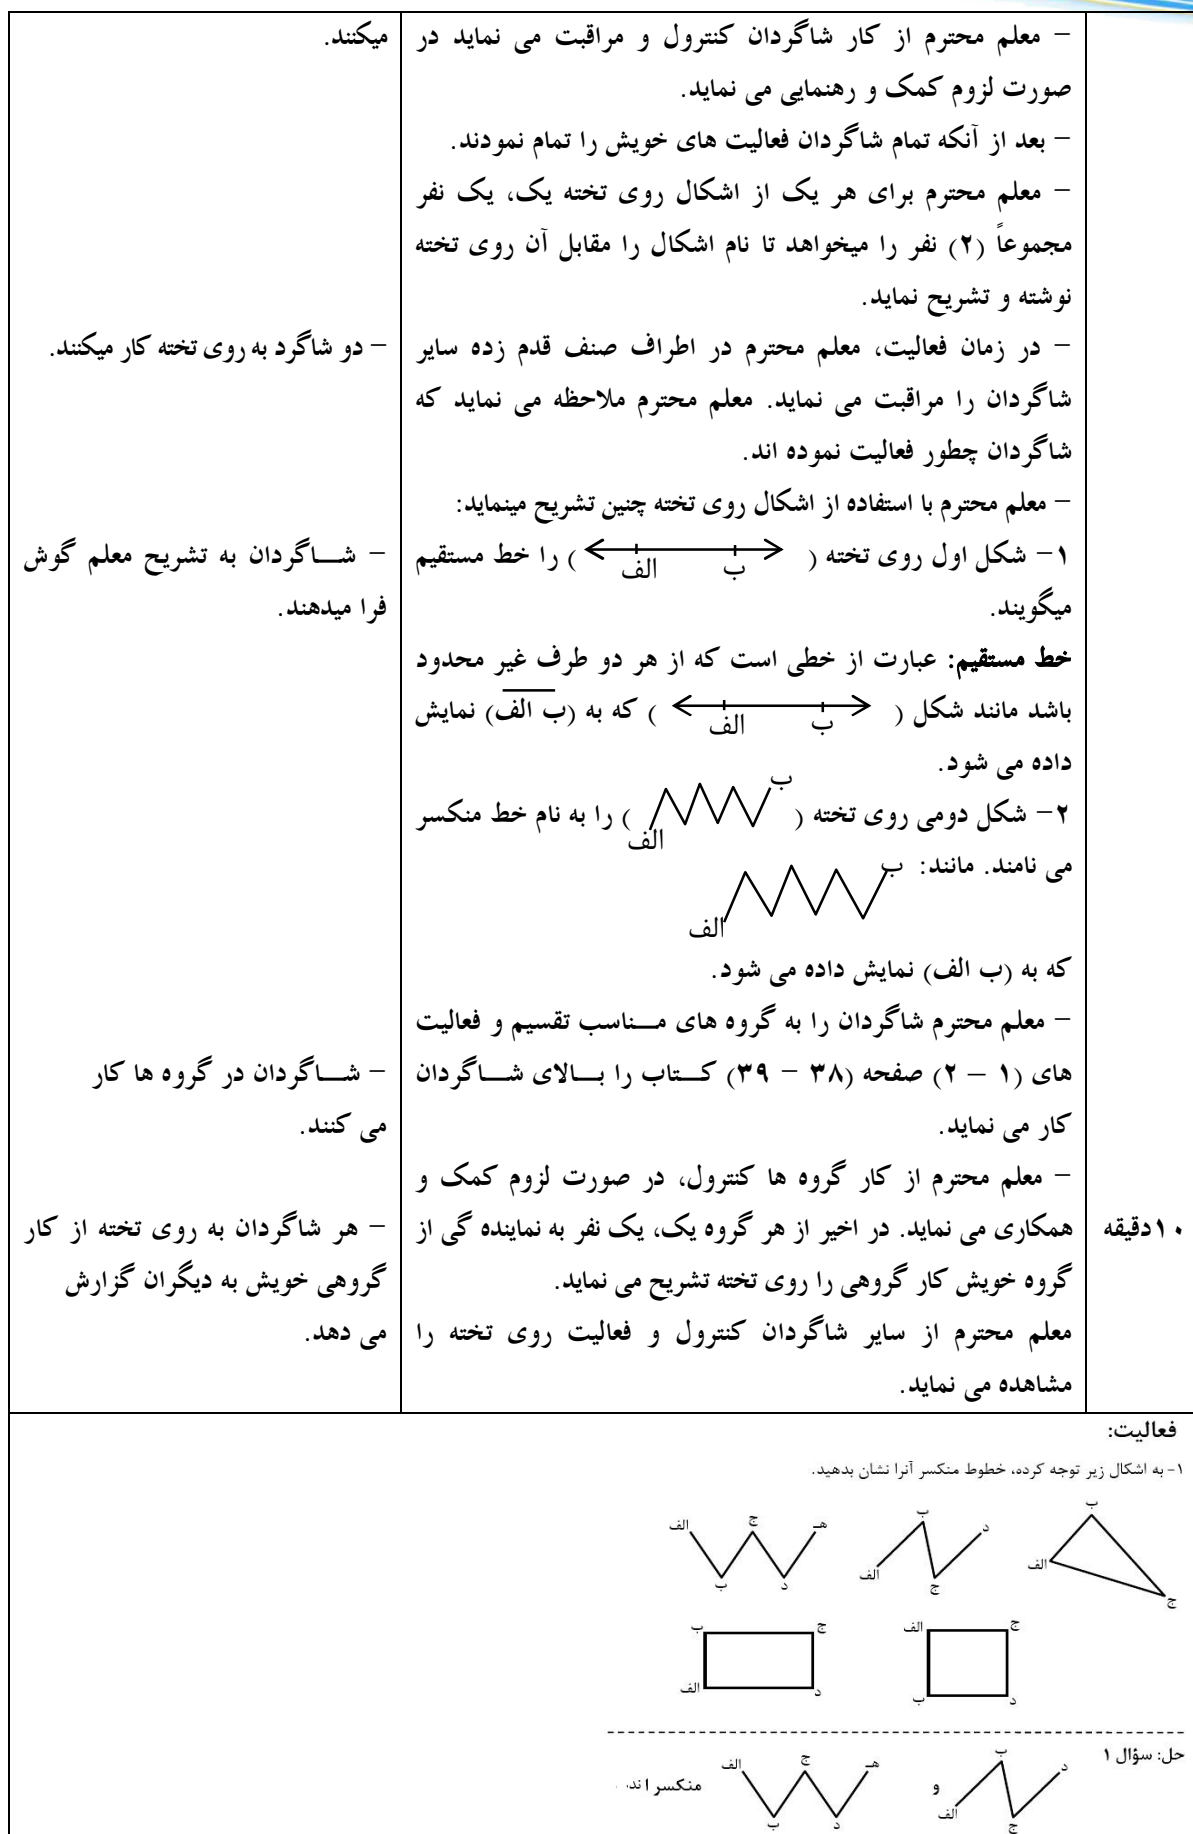 – معلم محترم از کار شاگردان کنترول و مراقبت می نماید در
صورت لزوم کمک و رهنمایی می نماید.
– بعد از آنکه تمام شاگردان فعالیت های خویش را تمام نمودند.
– معلم محترم برای هر یک از اشکال روی تخته یک، یک نفر
مجموعاً (۲) نفر را میخواهد تا نام اشکال را مقابل آن روی تخته
نوشته و تشریح نماید.
– در زمان فعالیت، معلم محترم در اطراف صنف قدم زده سایر
شاگردان را مراقبت می نماید. معلم محترم ملاحظه می نماید که
شاگردان چطور فعالیت نموده اند.
– معلم محترم با استفاده از اشکال روی تخته چنین تشریح مینماید:
۱– شکل اول روی تخته ( ب الف ) را خط مستقیم
میگویند.
خط مستقیم: عبارت از خطی است که از هر دو طرف غیر محدود
باشد مانند شکل ( ب الف ) که به (ب الف) نمایش
داده می شود.
۲– شکل دومی روی تخته ( ب الف ) را به نام خط منکسر
می نامند. مانند: ب
الف
که به (ب الف) نمایش داده می شود.
– معلم محترم شاگردان را به گروه های مـــناسب تقسیم و فعالیت
های (۱ – ۲) صفحه (۳۸ – ۳۹) کـــتاب را بـــالای شـــاگردان
کار می نماید.
– معلم محترم از کار گروه ها کنترول، در صورت لزوم کمک و
همکاری می نماید. در اخیر از هر گروه یک، یک نفر به نماینده گی از
گروه خویش کار گروهی را روی تخته تشریح می نماید.
معلم محترم از سایر شاگردان کنترول و فعالیت روی تخته را
مشاهده می نماید.
۱۰دقیقه
میکنند.
– دو شاگرد به روی تخته کار میکنند.
– شـــاگردان به تشریح معلم گوش
فرا میدهند.
– شـــاگردان در گروه ها کار
می کنند.
– هر شاگردان به روی تخته از کار
گروهی خویش به دیگران گزارش
می دهد.
فعالیت:
۱- به اشکال زیر توجه کرده، خطوط منکسر آنرا نشان بدهید.
ب
الف
ج
ب
د
الف
ج
هـ
ج
الف
د
ب
ج
الف
د
ب
ج
ب
د
الف
حل: سؤال ۱
ب
د
الف
ج
و
هـ
ج
الف
د
ب
منکسر اند.